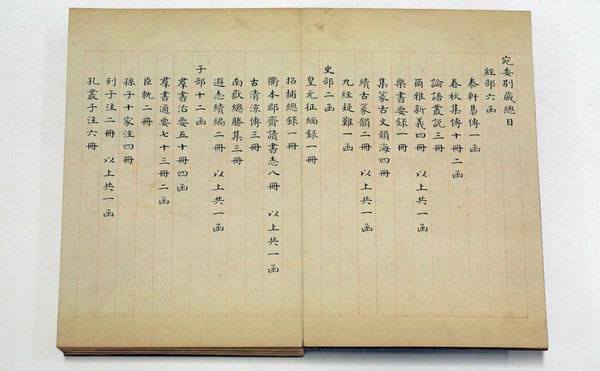 宛委别藏總目
經部六函
泰軒易傳一函
春秋集傳十冊二函
論語叢說三冊
爾雅新義四冊 以上共一函
樂書要錄一冊
集篆古文韻海四冊
續古篆韻二冊 以上共一函
九經疑難一函
史部二函
皇元征緬錄一冊
招捕總錄一冊
衢本郡齋讀書志八冊 以上共一函
古清涼傳三冊
南嶽總勝集三冊
遊志續編二冊 以上共一函
子部十二函
羣書治要五十冊四函
羣書通要七十三冊二函
臣軌二冊
孫子十家注四冊
列子注二冊 以上共一函
孔叢子注六冊